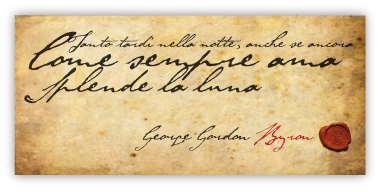 Tanto tardi nella notte, anche se ancora
Come sempre ama
Splende la luna
George Gordon Byron